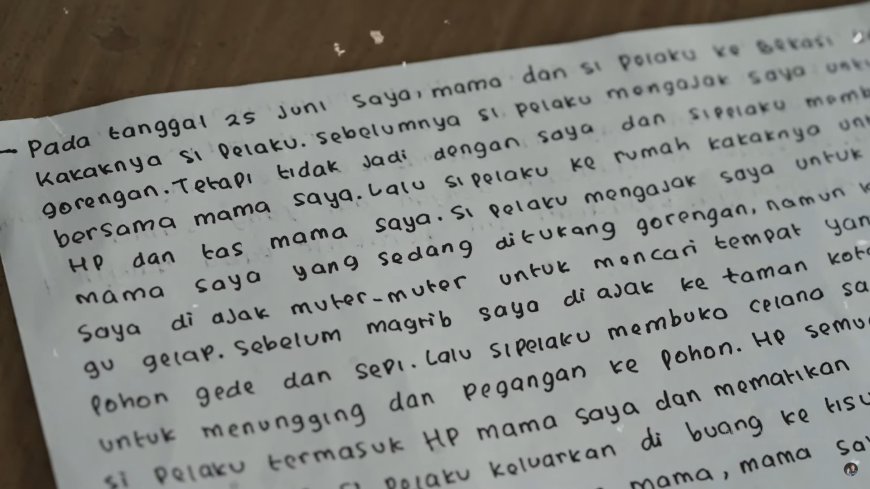 - Pada tanggal 25 Juni saya, mama dan si pelaku ke Bekasi
Kakaknya si Pelaku. Sebelumnya si pelaku mengajak saya
gorengan. Tetapi tidak Jadi dengan saya dan sipelaku
bersama mama saya. Lalu si pelaku ke rumah kakaknya
HP dan tas mama saya. Si pelaku mengajak saya untuk
mama saya yang sedang ditukang gorengan, namun
saya di ajak muter-muter untuk mencari tempat
gu gelap. Sebelum magrib saya di ajak ke taman
Pohon gede dan sepi. Lalu sipelaku membuka celana
untuk menungging dan pegangan ke pohon. HP
si pelaku termasuk HP mama saya dan mematikan
pelaku keluarkan di buang ke
mama, mama